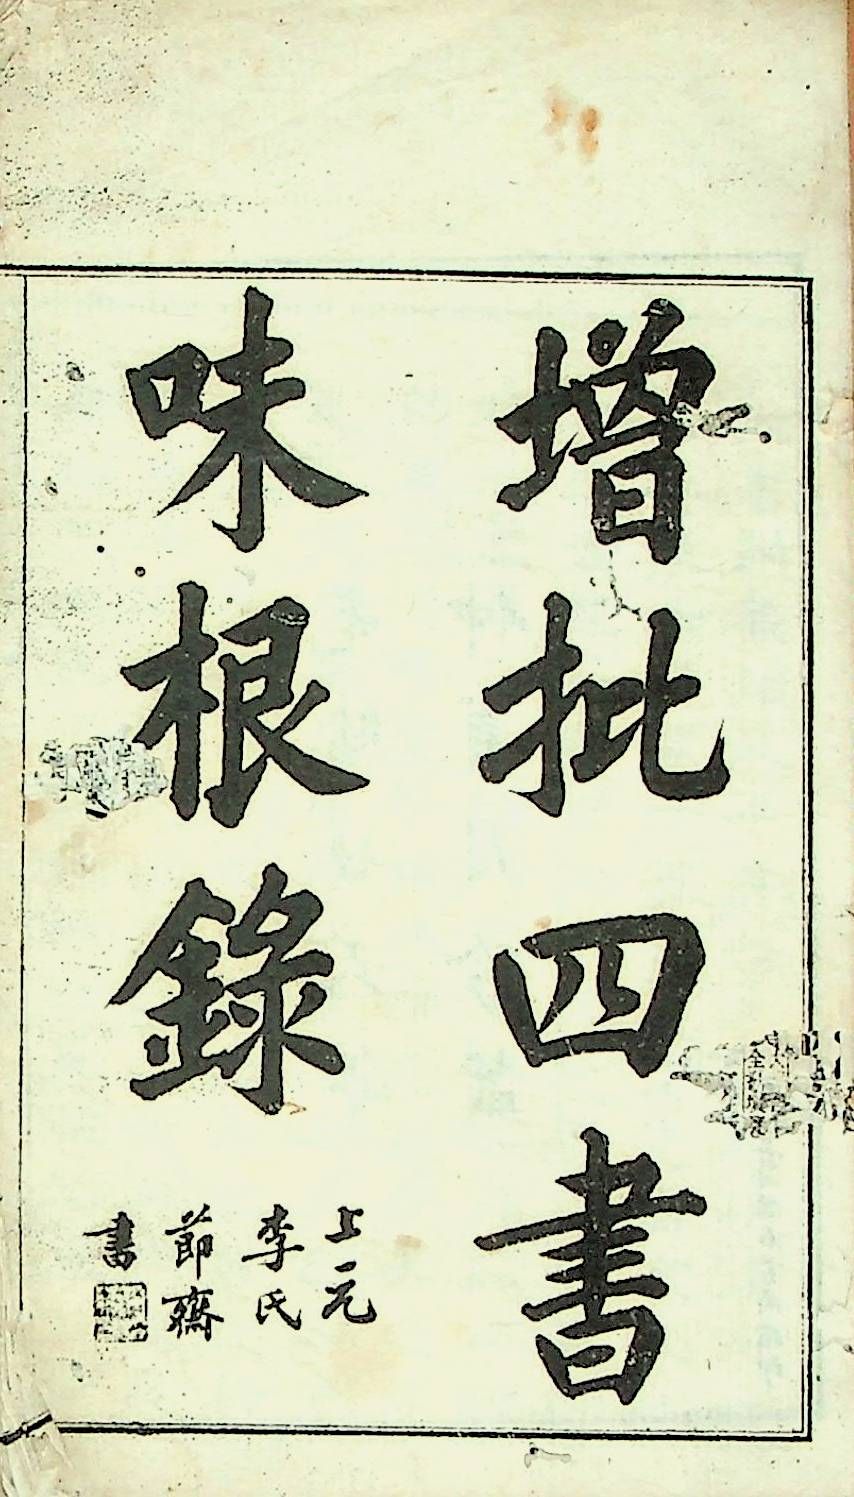 增批四書
味根錄
上元
李氏
節齋
書